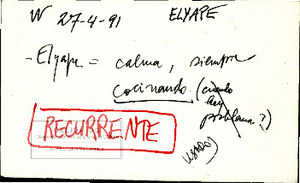 W 27-4-91 ELYAPE
- Elyape = calma, siempre
cocinando. (cuando
hay
problema?)
RECURRENTE
(USADO)